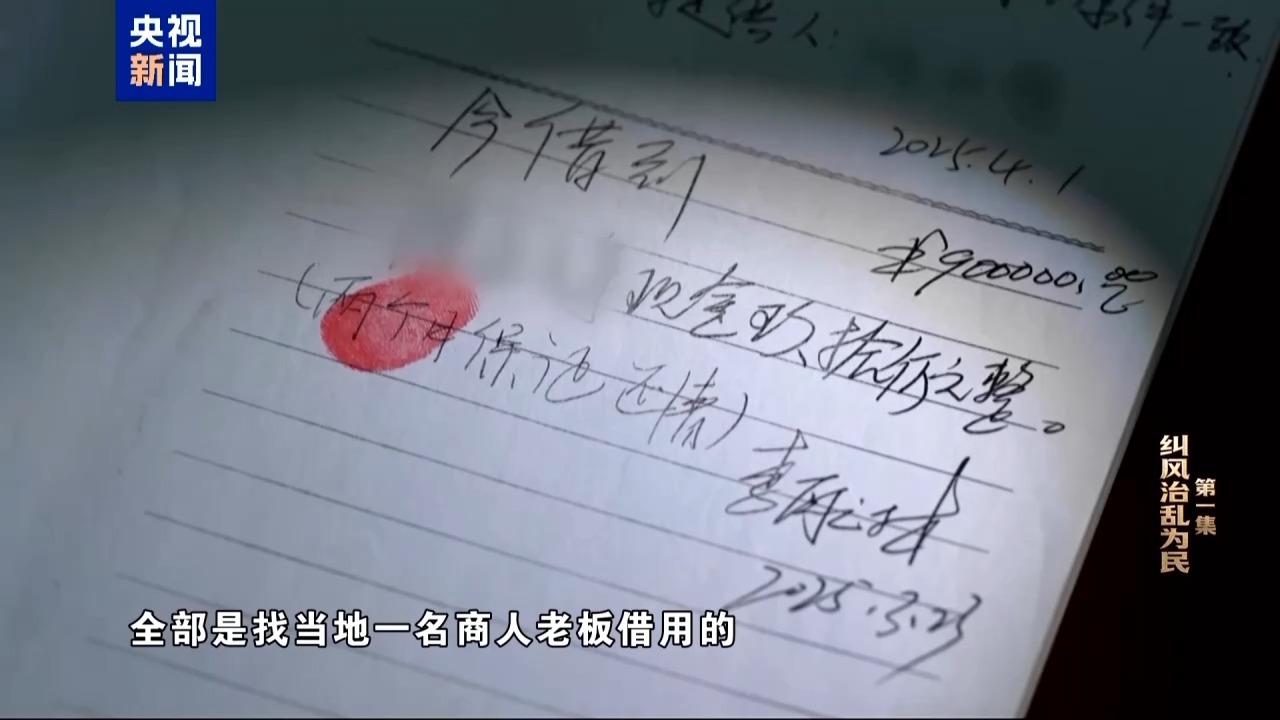 央视
新闻
提供人：
件一致.
2025.4.1
今借到
¥900000.00
现金玖拾万元整。
(两个月保证还清)
2025.3.23
全部是找当地一名商人老板借用的
第一集
纠风治乱为民